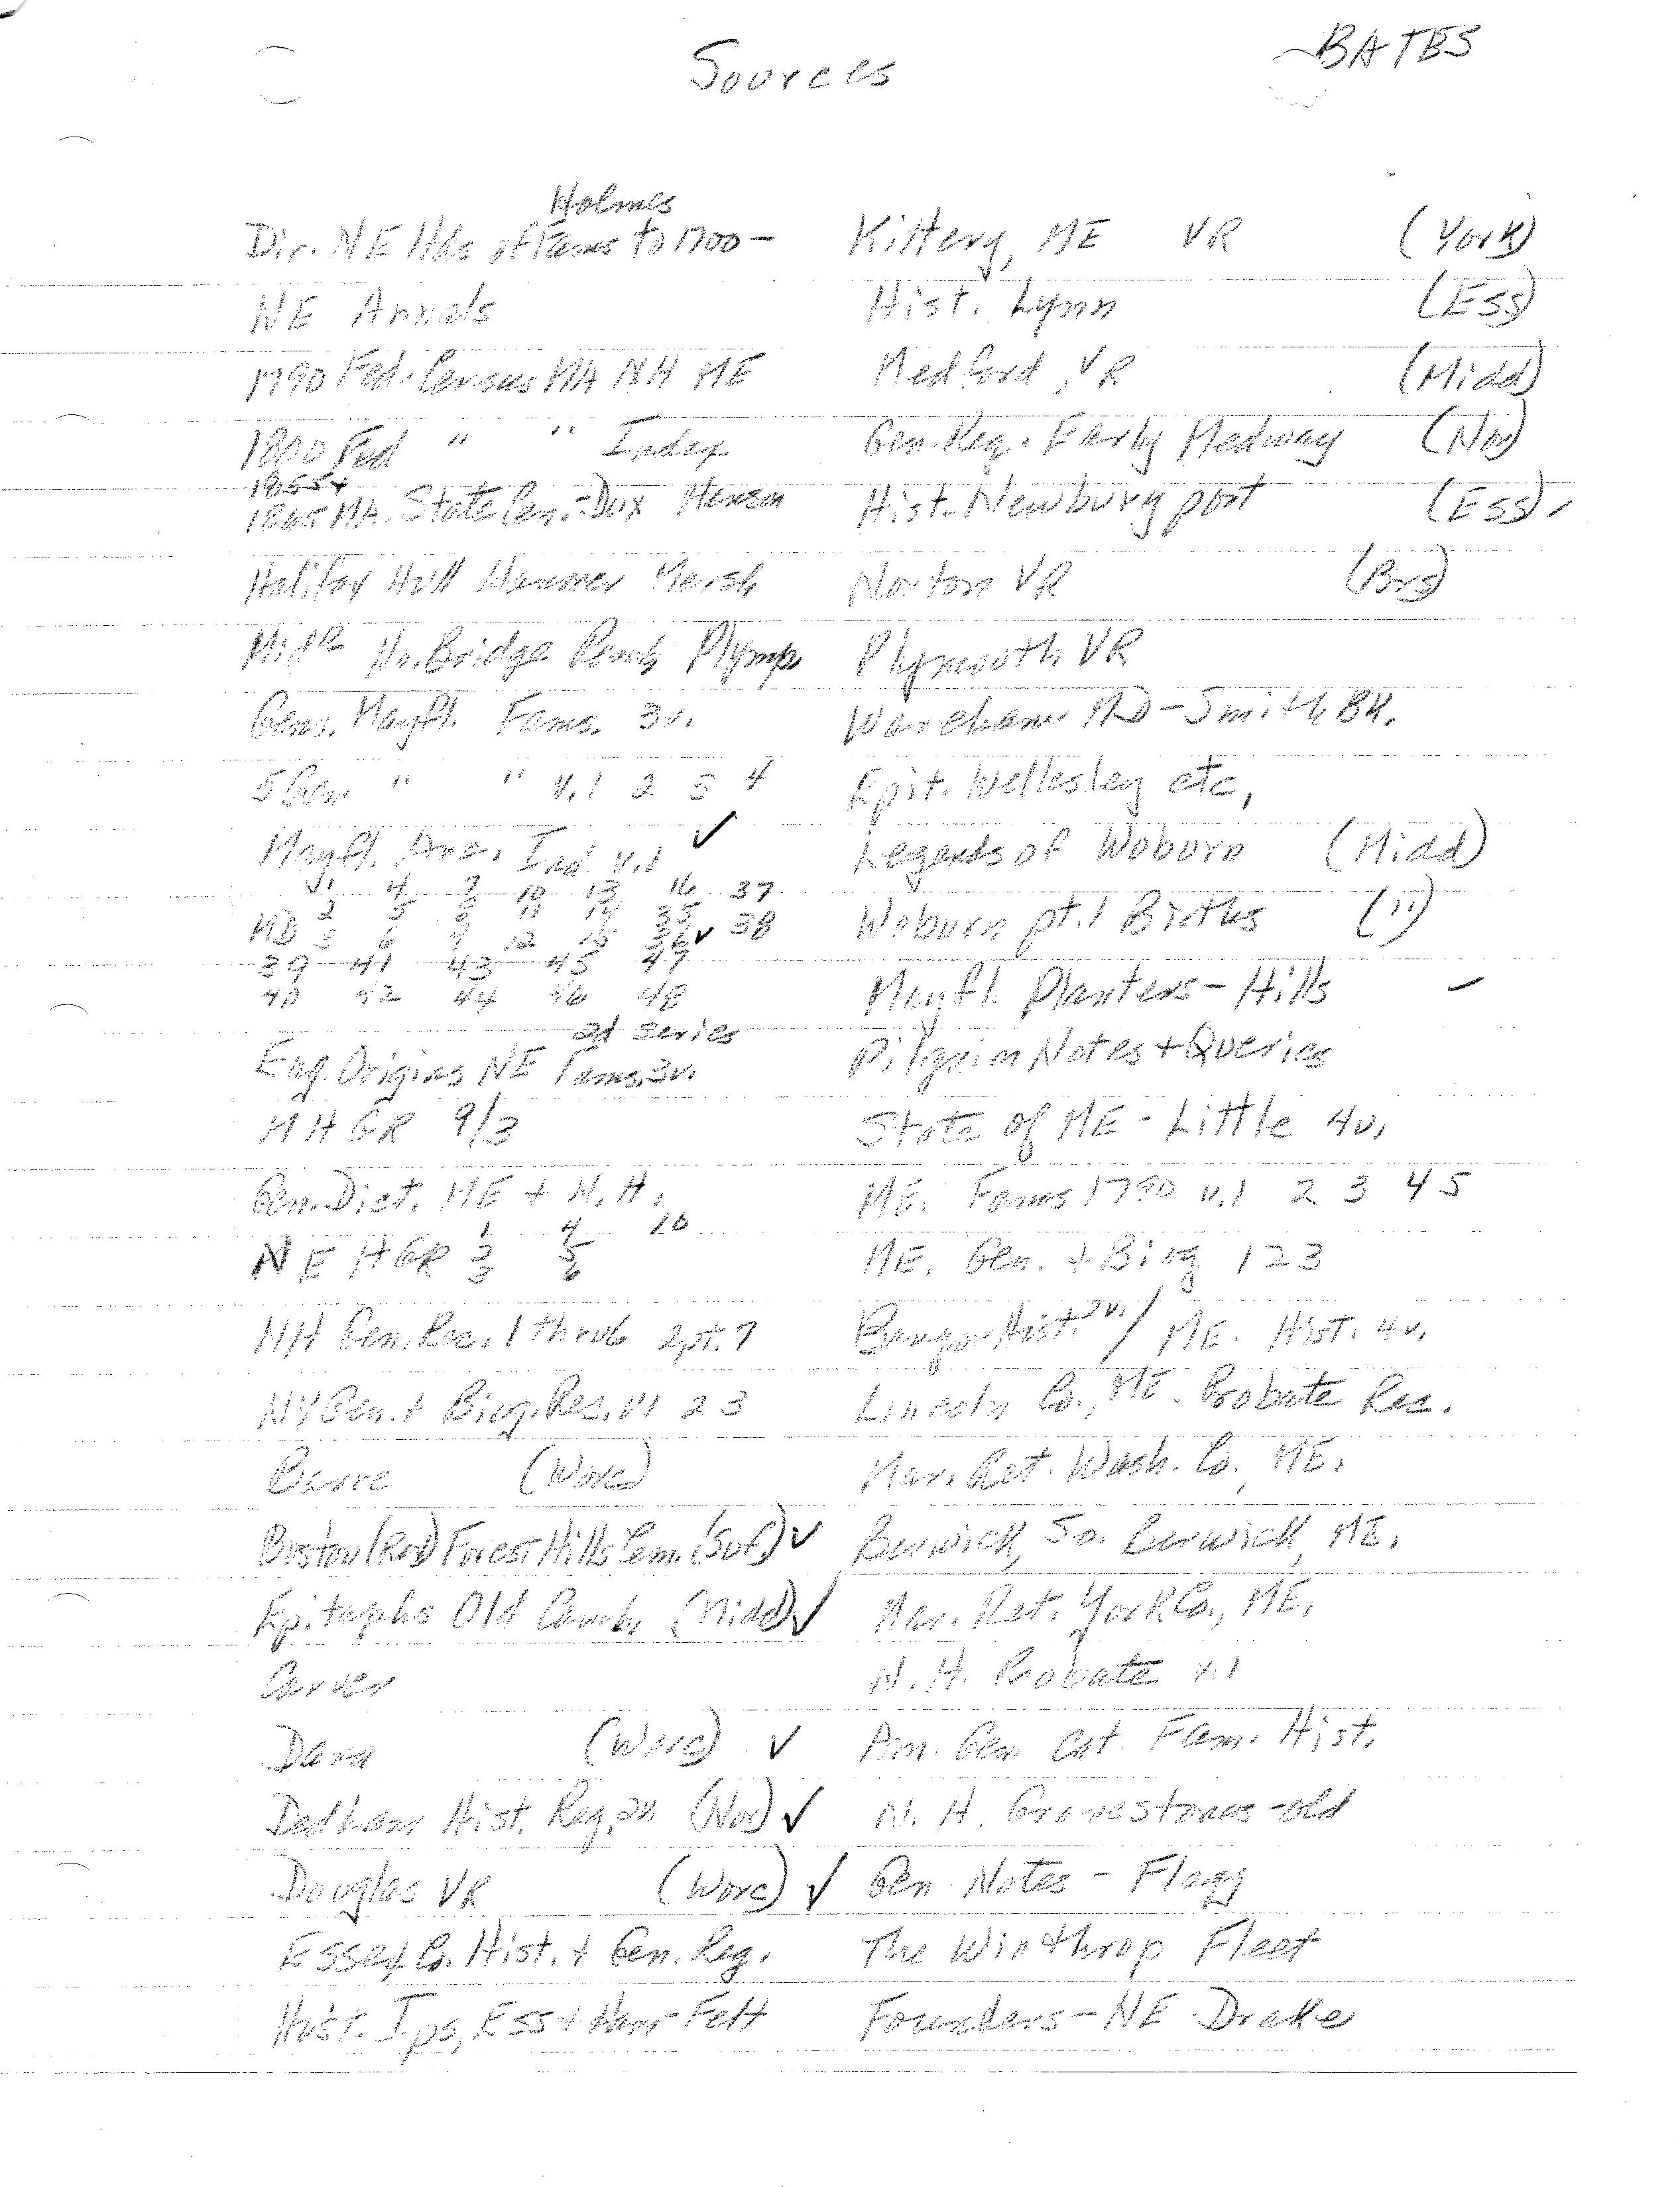 Sources
BATES
Holmes
Dir. NE Hds of Fams to 1700 –
NE Annals
1790 Fed. Census MA NH ME
1800 Fed " " Index
1855 +
1865 MA. State Cen. – Dux Hanson
Halifax Hull Hanover Marsh
Midd No. Bridge Pemb Plymp
Gens. Mayfl. Fams. 3v.
5 Gen " " v.1 2 3 4
Mayfl. Ind v.1 ✓
v1 4 7 10 13 16 37
2 5 8 11 14 35
MD 3 6 9 12 15 36 ✓ 38
39 41 43 45 47
40 42 44 46 48
2d series
Eng. Origins NE Fams. 3v.
MHGR 9/3
Gen. Dict. ME + N.H.
1 4 10
NEHGR 2 5
3 6
NH Gen. Rec. 1 thru 6 2pt. 7
NY Gen. + Biog. Rec. v1 2 3
Barre (Worc)
Boston (Rox) Forest Hills Cem. (Suf.) ✓
Epitaphs Old Camb. (Midd) ✓
Carver
Dana (Worc) ✓
Dedham Hist. Reg. 2v (Nor) ✓
Douglas VR (Worc) ✓
Essex Co. Hist. + Gen. Reg.
Hist. Ips, Ess + Ham – Felt
Kittery, ME VR (York)
Hist. Lynn (Ess)
Medford, VR (Midd)
Gen. Reg. Early Medway (Nor)
Hist. Newburyport (Ess)
Norton VR (Brs)
Plymouth VR
Wareham MD – Smith BK.
Epit. Wellesley etc.
Legends of Woburn (Midd)
Woburn pt. 1 Births (")
Mayfl. Planters – Hills –
Pilgrim Notes + Queries
State of ME – Little 4v.
ME. Fams 1790 v.1 2 3 4 5
ME. Gen. + Biog 1 2 3
Bangor Hist. / ME. Hist. 4v.
Lincoln Co., ME. Probate Rec.
Mar. Ret. Wash. Co., ME.
Berwick, So. Berwick, ME.
Mar. Ret. York Co., ME.
N.H. Probate v.1
Am. Gen. Cat. Fam. Hist.
N.H. Gravestones – old
Gen. Notes – Flagg
The Winthrop Fleet
Founders – NE Drake